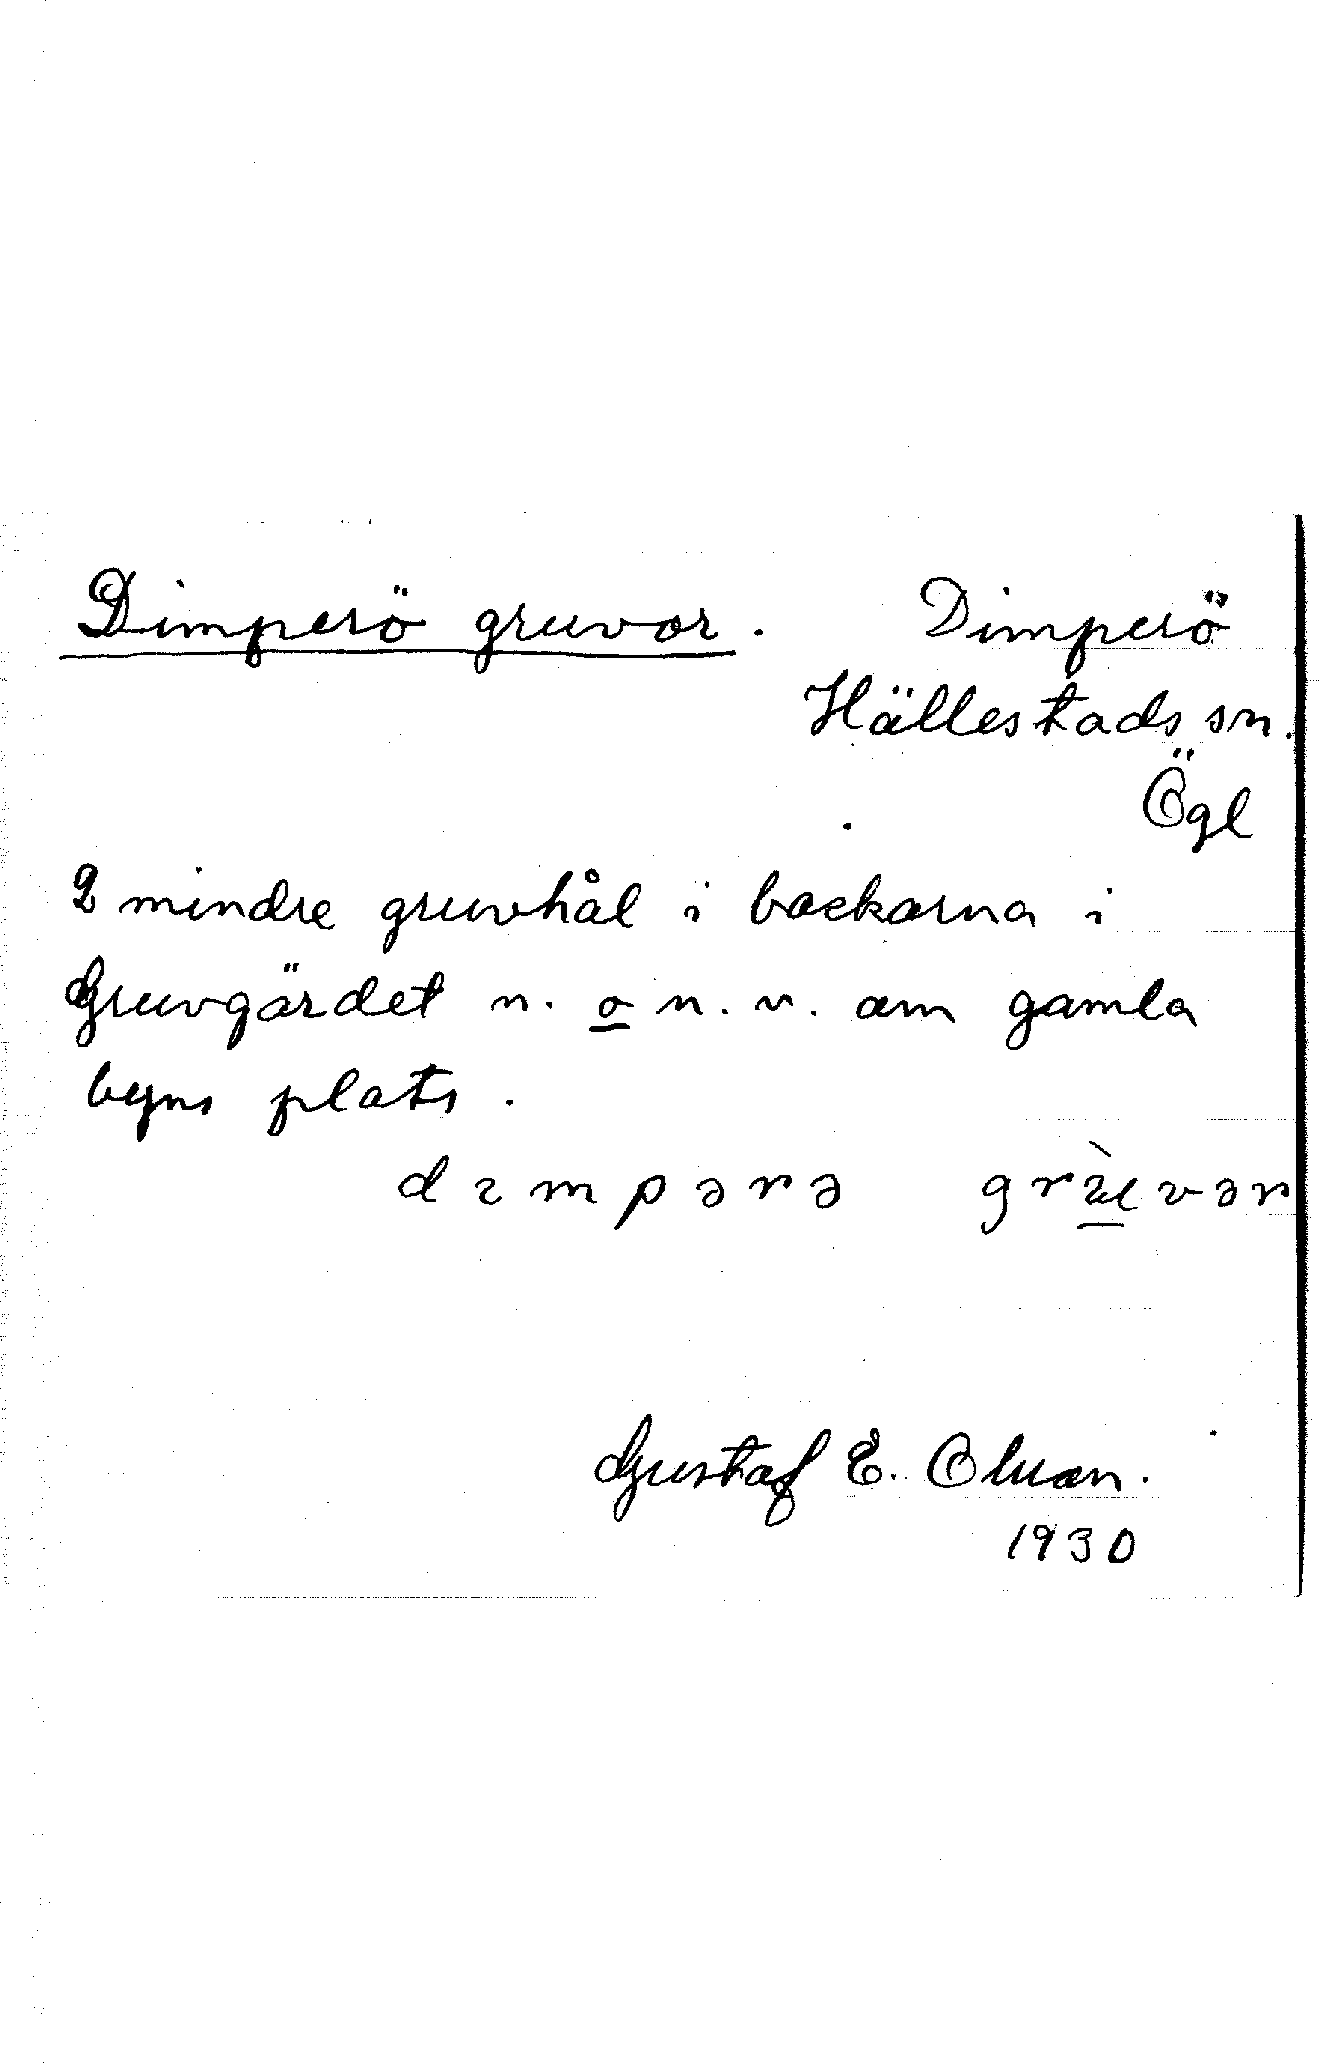 Dimperö gruvor. Dimperö
Hällestads sn.
Ögl
2 mindre gruvhål i backarna i
Gruvgärdet n. o n. v. om gamla
byns plats.
dɪmpərə grùvər
Gustaf E.
1930